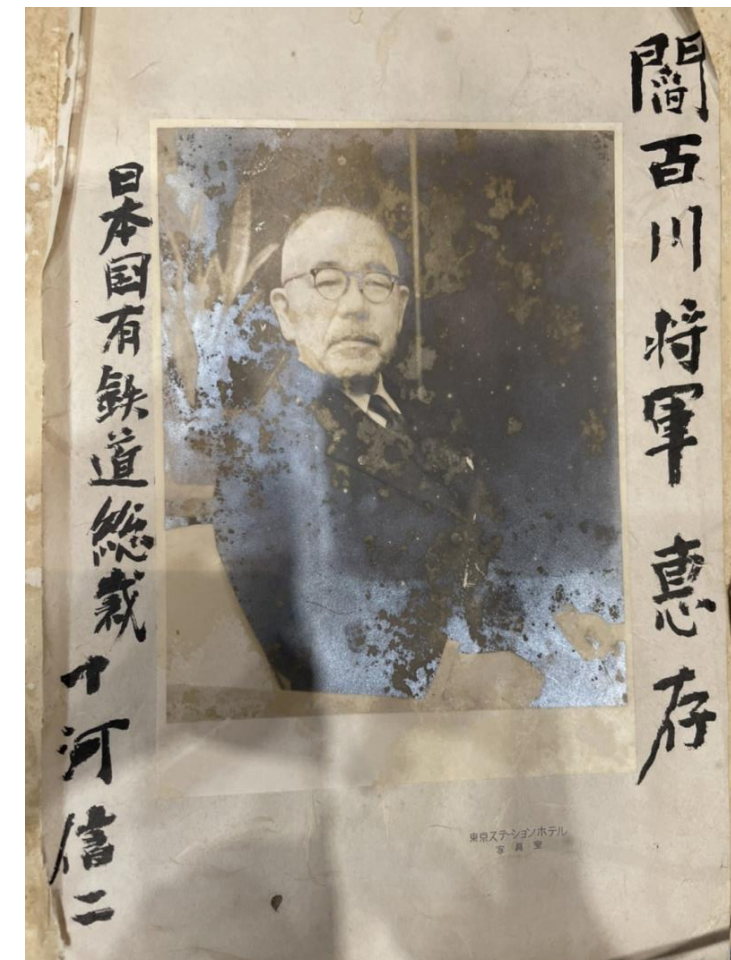 閻百川将軍 惠存
日本国有鉄道総裁
十河信二
東京ステーションホテル
写真室